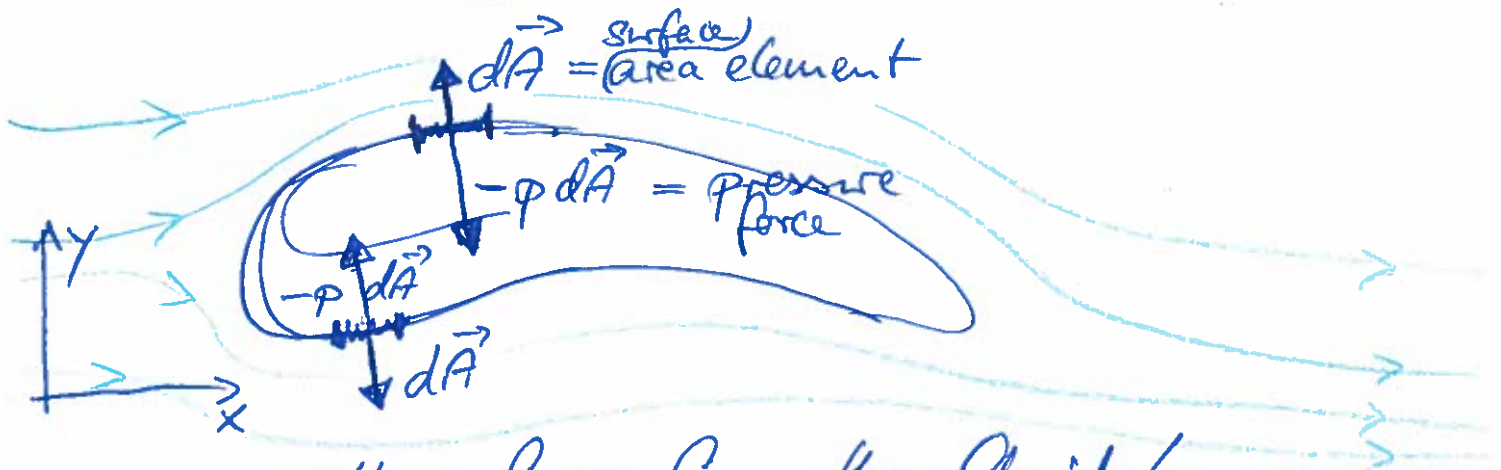 dA⃗ = surface area element
-p dA⃗ = pressure force
-p dA⃗
dA⃗
y
x